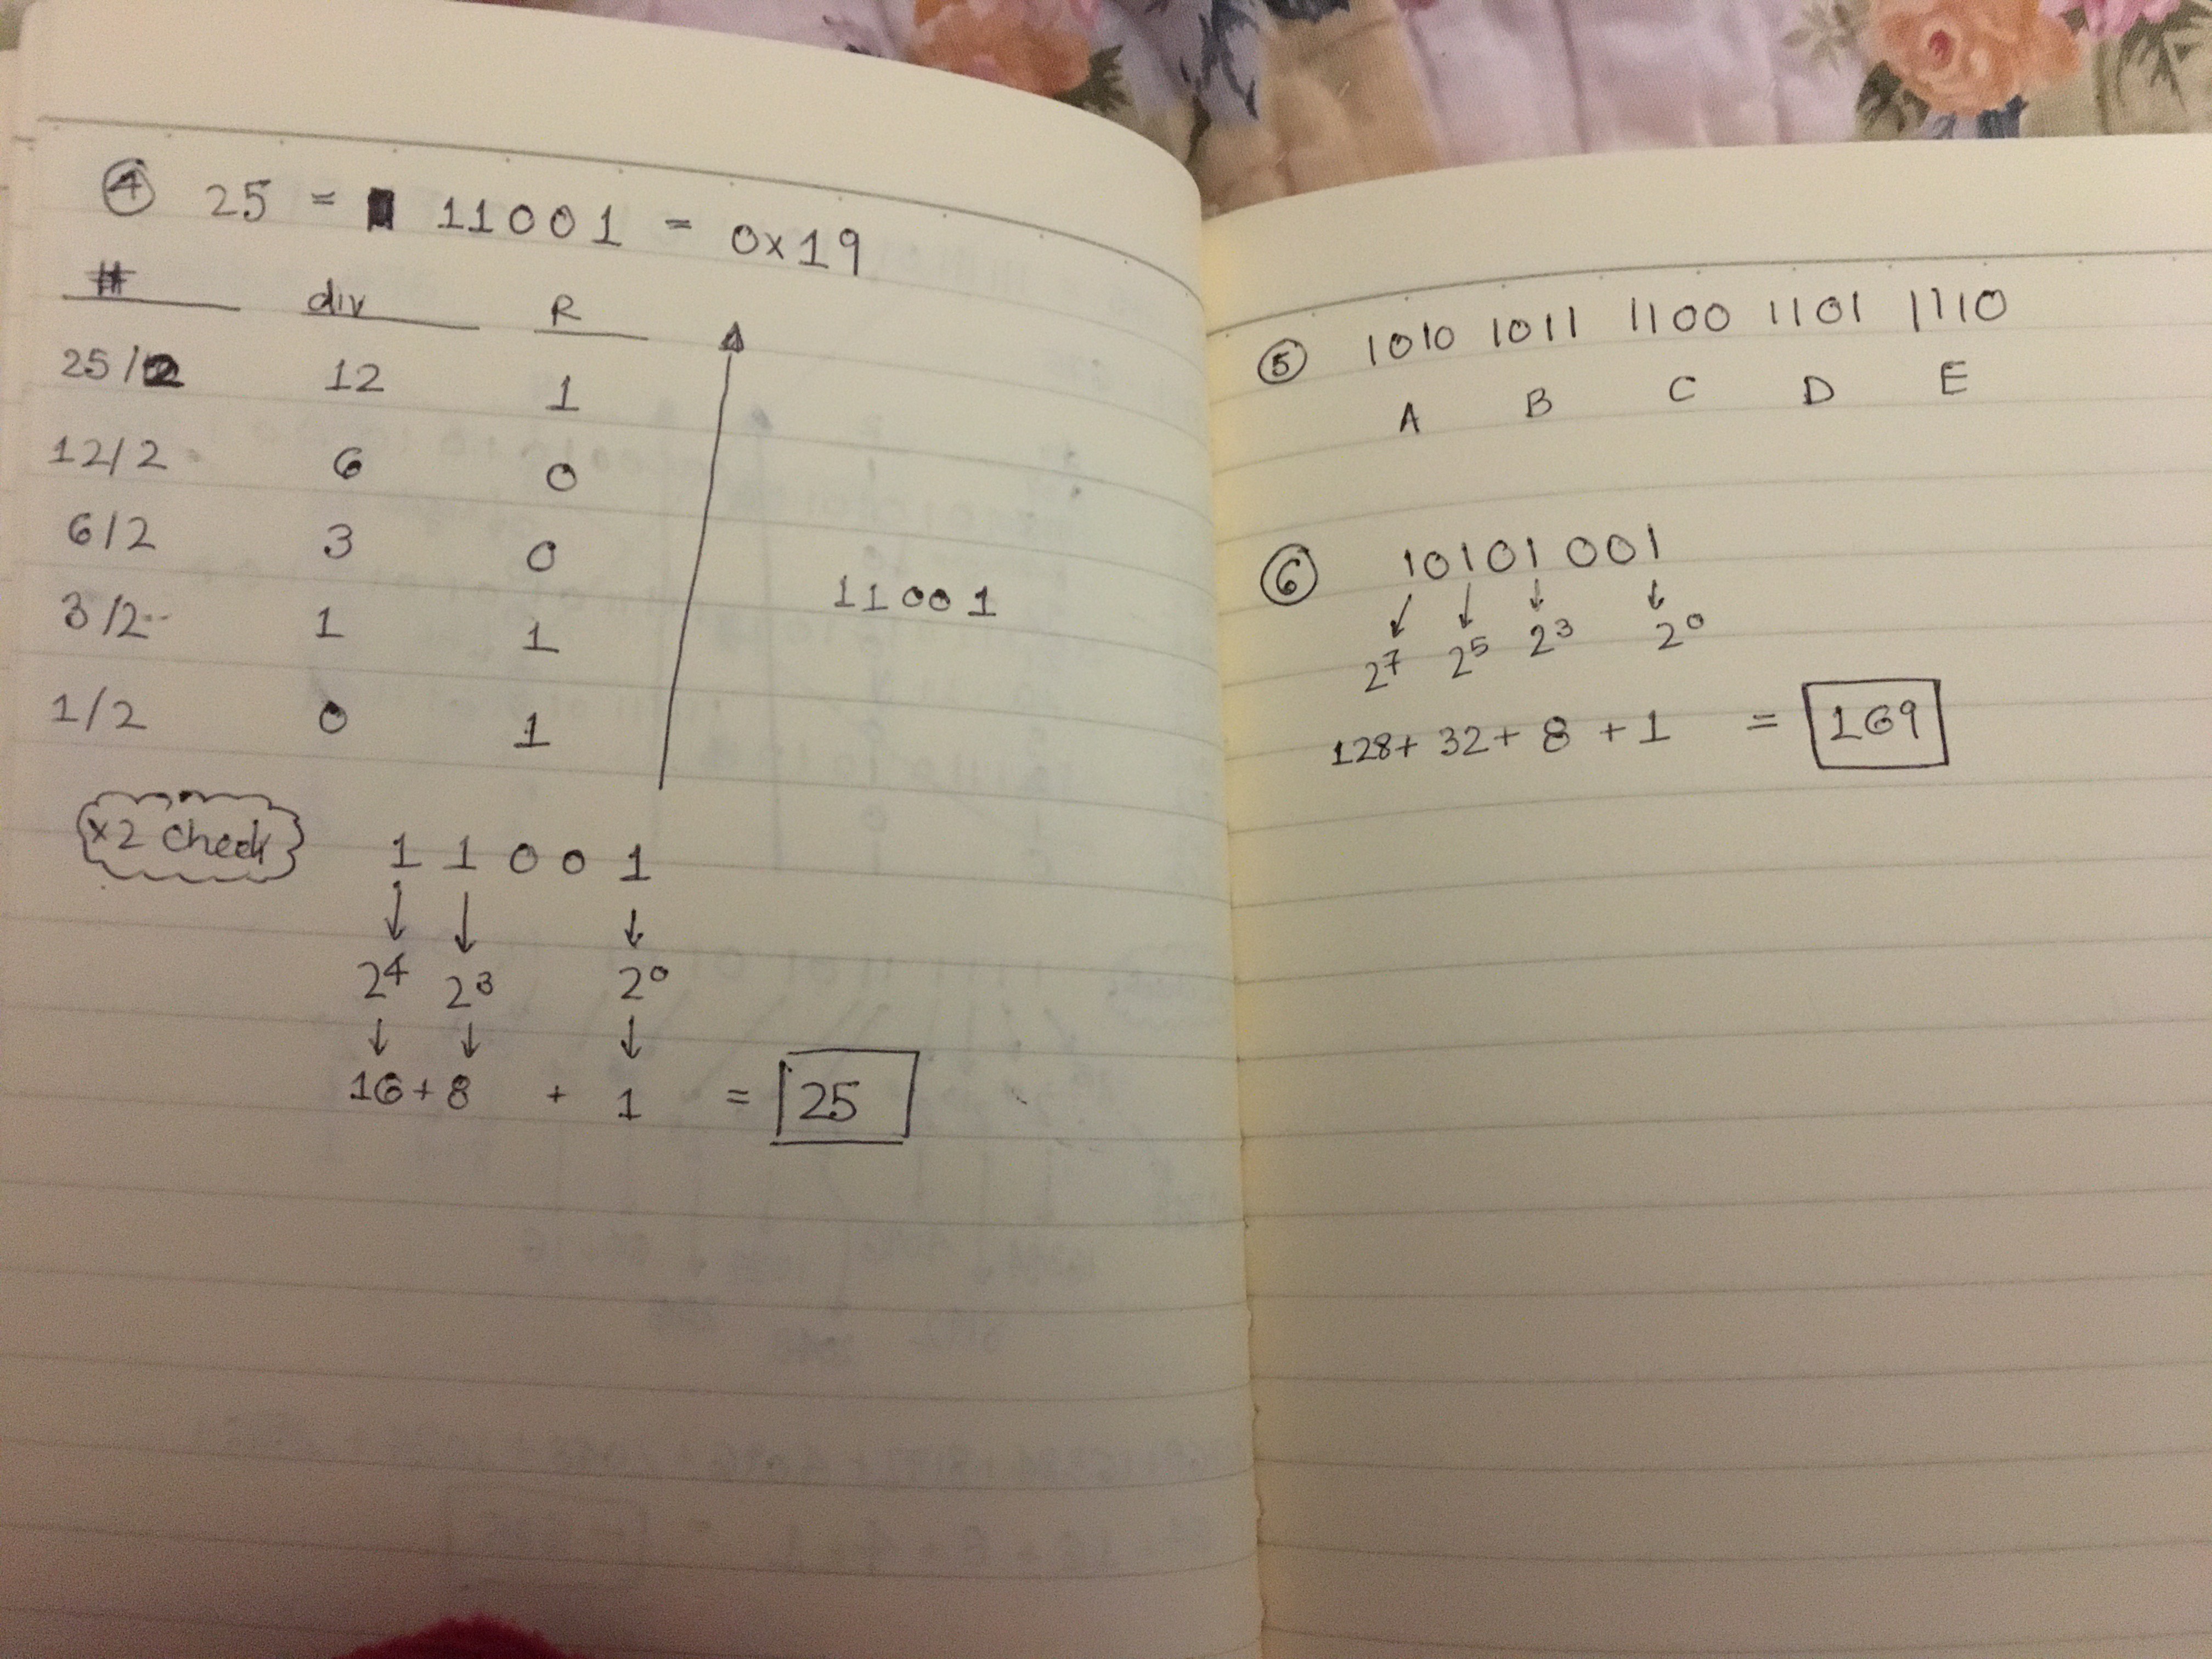 ④ 25 = 11001 = 0x19
# div R
25/2 12 1
12/2 6 0
6/2 3 0
3/2 1 1
1/2 0 1
11001
x2 check
1 1 0 0 1
↓ ↓ ↓
2⁴ 2³ 2⁰
↓ ↓ ↓
16 + 8 + 1 = 25
⑤ 1010 1011 1100 1101 1110
A B C D E
⑥ 10101 001
↓ ↓ ↓ ↓
2⁷ 2⁵ 2³ 2⁰
128 + 32 + 8 + 1 = 169